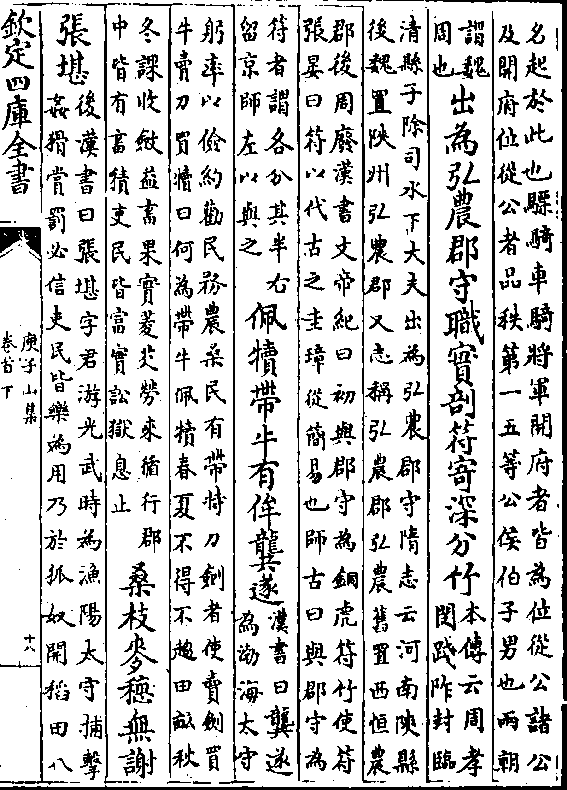 名起於此也驃騎車騎將軍開府者皆為位從公諸公
及開府位從公者品秩第一五等公侯伯子男也兩朝
謂魏
周也
出為弘農郡守職實剖符寄深分竹
本傳云周孝
閔踐阼封臨
清縣子除司水下大夫出為弘農郡守隋志云河南陝縣
後魏置陝州弘農郡又志稱弘農郡弘農舊置西恒農
郡後周廢漢書文帝紀曰初與郡守為銅虎符竹使符
張晏曰符以代古之圭璋從簡易也師古曰與郡守為
符者謂各分其半右
留京師左以與之
佩犢帶牛有侔龔遂
漢書曰龔遂
為渤海太守
躬率以儉約勸民務農桑民有帶持刀劍者使賣劍買
牛賣刀買犢曰何為帶牛佩犢春夏不得不趨田畝秋
冬課收斂益畜果實菱芡勞來循行郡
中皆有畜積吏民皆富實訟獄息止
桑枝麥穗無謝
張堪
後漢書曰張堪字君游光武時為漁陽太守捕擊
姦猾賞罰必信吏民皆樂為用乃於狐奴開稻田八
欽定四庫全書
庚子山集
卷首下
十八